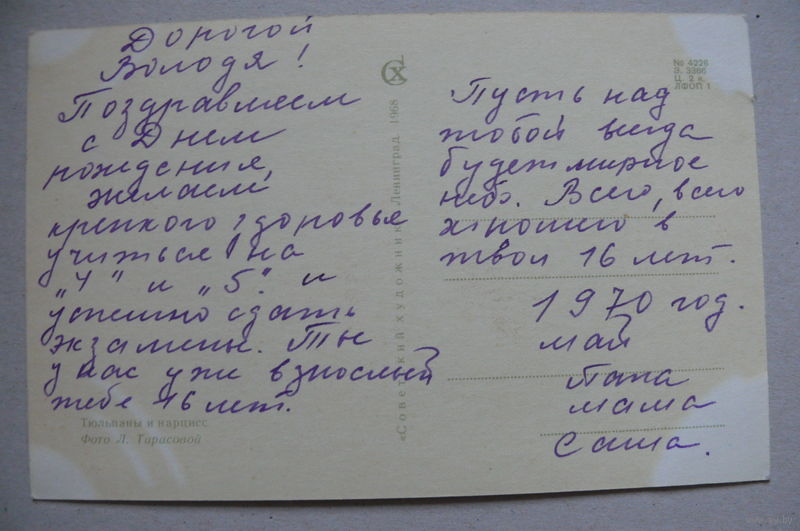 Дорогой
Володя!
Поздравляем
с Днем
рождения,
желаем
крепкого здоровье
учиться на
„4" и „5". и
успешно сдать
экзамены. Ты
у нас уже взрослый
тебе 16 лет.
Тюльпаны и нарцисс
Фото Л. Тарасовой
«Советский художник» Ленинград 1968
СХ
№ 4226
З. 3366
Ц. 2 к.
ЛФОП 1
Пусть над
тобой всегда
будет мирное
небо. Всего, всего
хорошего в
твои 16 лет.
1970 год.
май
Папа
мама
Саша.